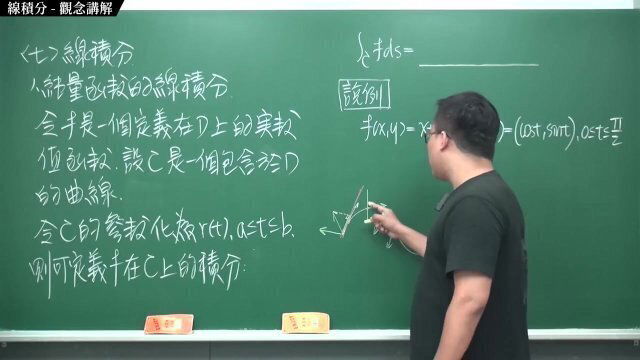 線積分 - 觀念講解
〈七〉線積分
1. 純量函數的線積分.
令f是一個定義在D上的實數
值函數. 設C是一個包含於D
的曲線.
令C的參數化為r(t), a≤t≤b,
則可定義f在C上的積分:
∫c f ds=
說例
f(x,y)= x
)=(cost, sint), 0≤t≤π/2